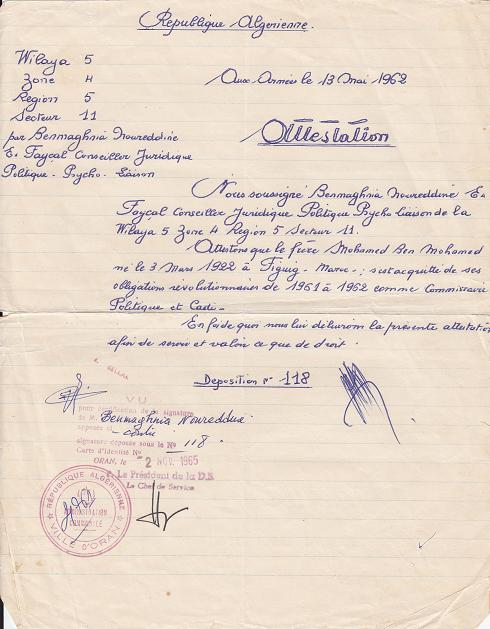 Republique Algerienne.
Wilaya 5
Zone 4
Region 5
Secteur 11
par Benmaghnia Noureddine
Ex Fayçal Conseiller Juridique
Politique - Psycho - Liaison
Aux Armées le 13 Mai 1962
Attestation
Nous soussigné Benmaghnia Noureddine Ex
Fayçal Conseiller Juridique Politique-Psycho Liaison de la
Wilaya 5 Zone 4 Region 5 Secteur 11.
Attestons que le frère Mohamed Ben Mohamed
né le 3 Mars 1922 à Figuig - Maroc - ; s'est acquitté de ses
obligations révolutionnaires de 1961 à 1962 comme Commissaire
Politique et Cadi -
En foi de quoi nous lui délivrons la présente attestation
afin de servir et valoir ce que de droit.
Deposition n° 118
VU
pour de la signature
de M. Benmaghnia Noureddine
apposée
signature déposée sous le No 118.
Carte d'Identité No
ORAN, le 2 NOV. 1965
Le Président de la D.S.
Le Chef de Service
RÉPUBLIQUE ALGÉRIENNE
VILLE D'ORAN